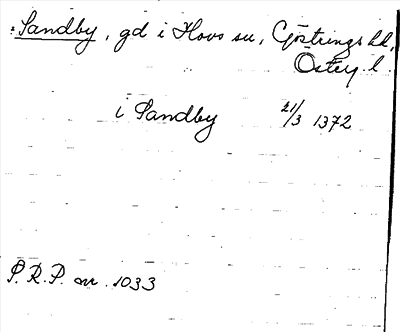 Sandby, gd i Hovs sn, Göstrings hd,
Österg. l.
i Sandby 21/3 1372
P. R. P. nr. 1033